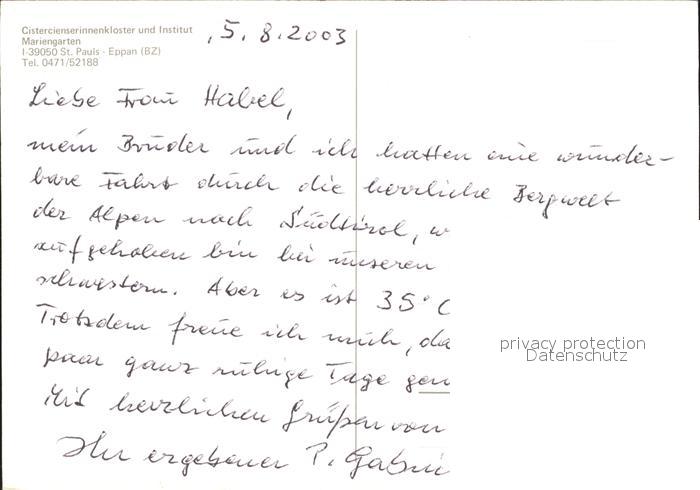 Cistercienserinnenkloster und Institut
Mariengarten
I-39050 St. Pauls - Eppan (BZ)
Tel. 0471/52188
, 5.8.2003
Liebe Frau Habel,
mein Bruder und ich hatten eine wunder-
bare Fahrt durch die herrliche Bergwelt
der Alpen nach Südtirol, w
aufgehoben bin bei unseren
schwestern. Aber es ist 35° C
Trotzdem freue ich mich, da
paar ganz ruhige Tage gen
Mit herzlichen Grüßen von
Ihr ergebener P. Gabri
privacy protection
Datenschutz